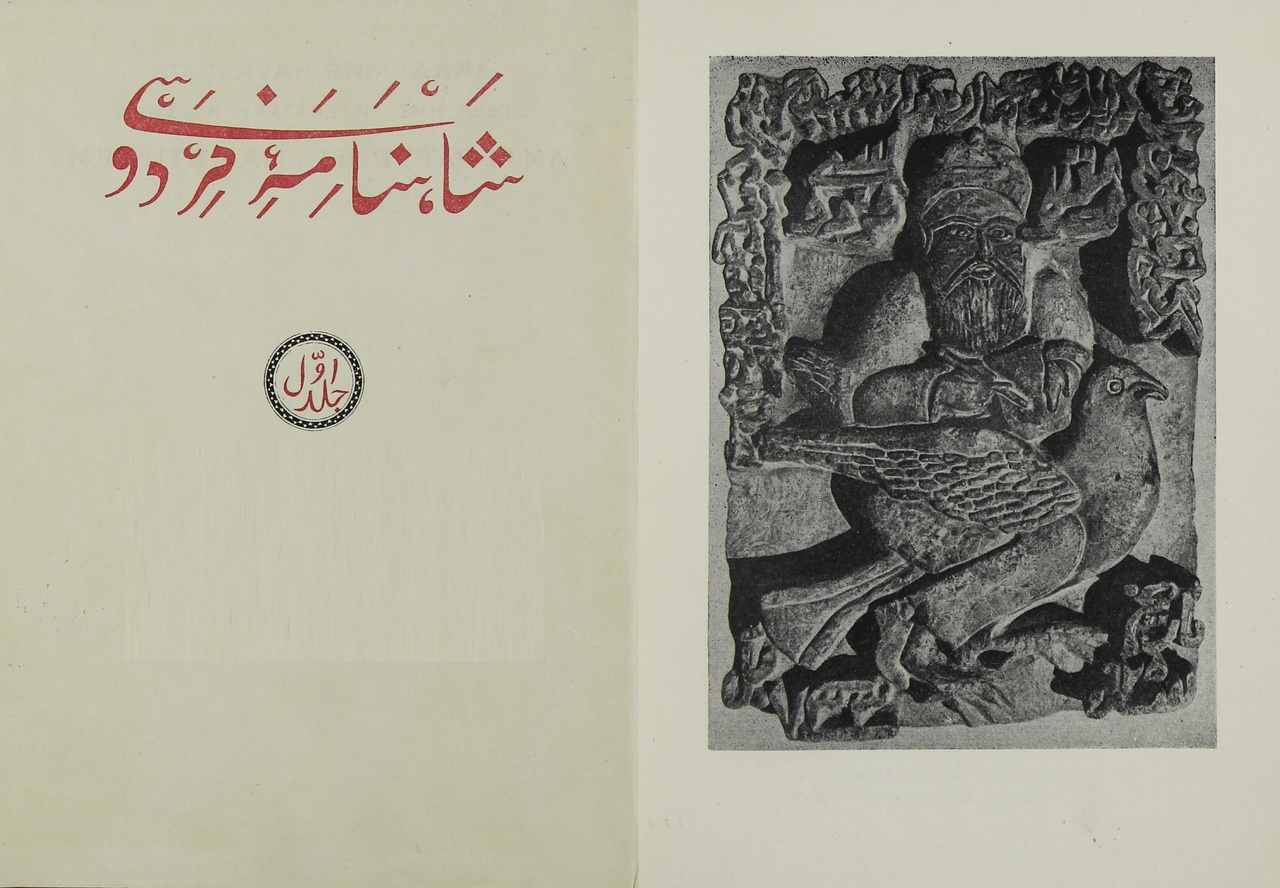 شاهنامهٔ فردوسی
جلد اوّل